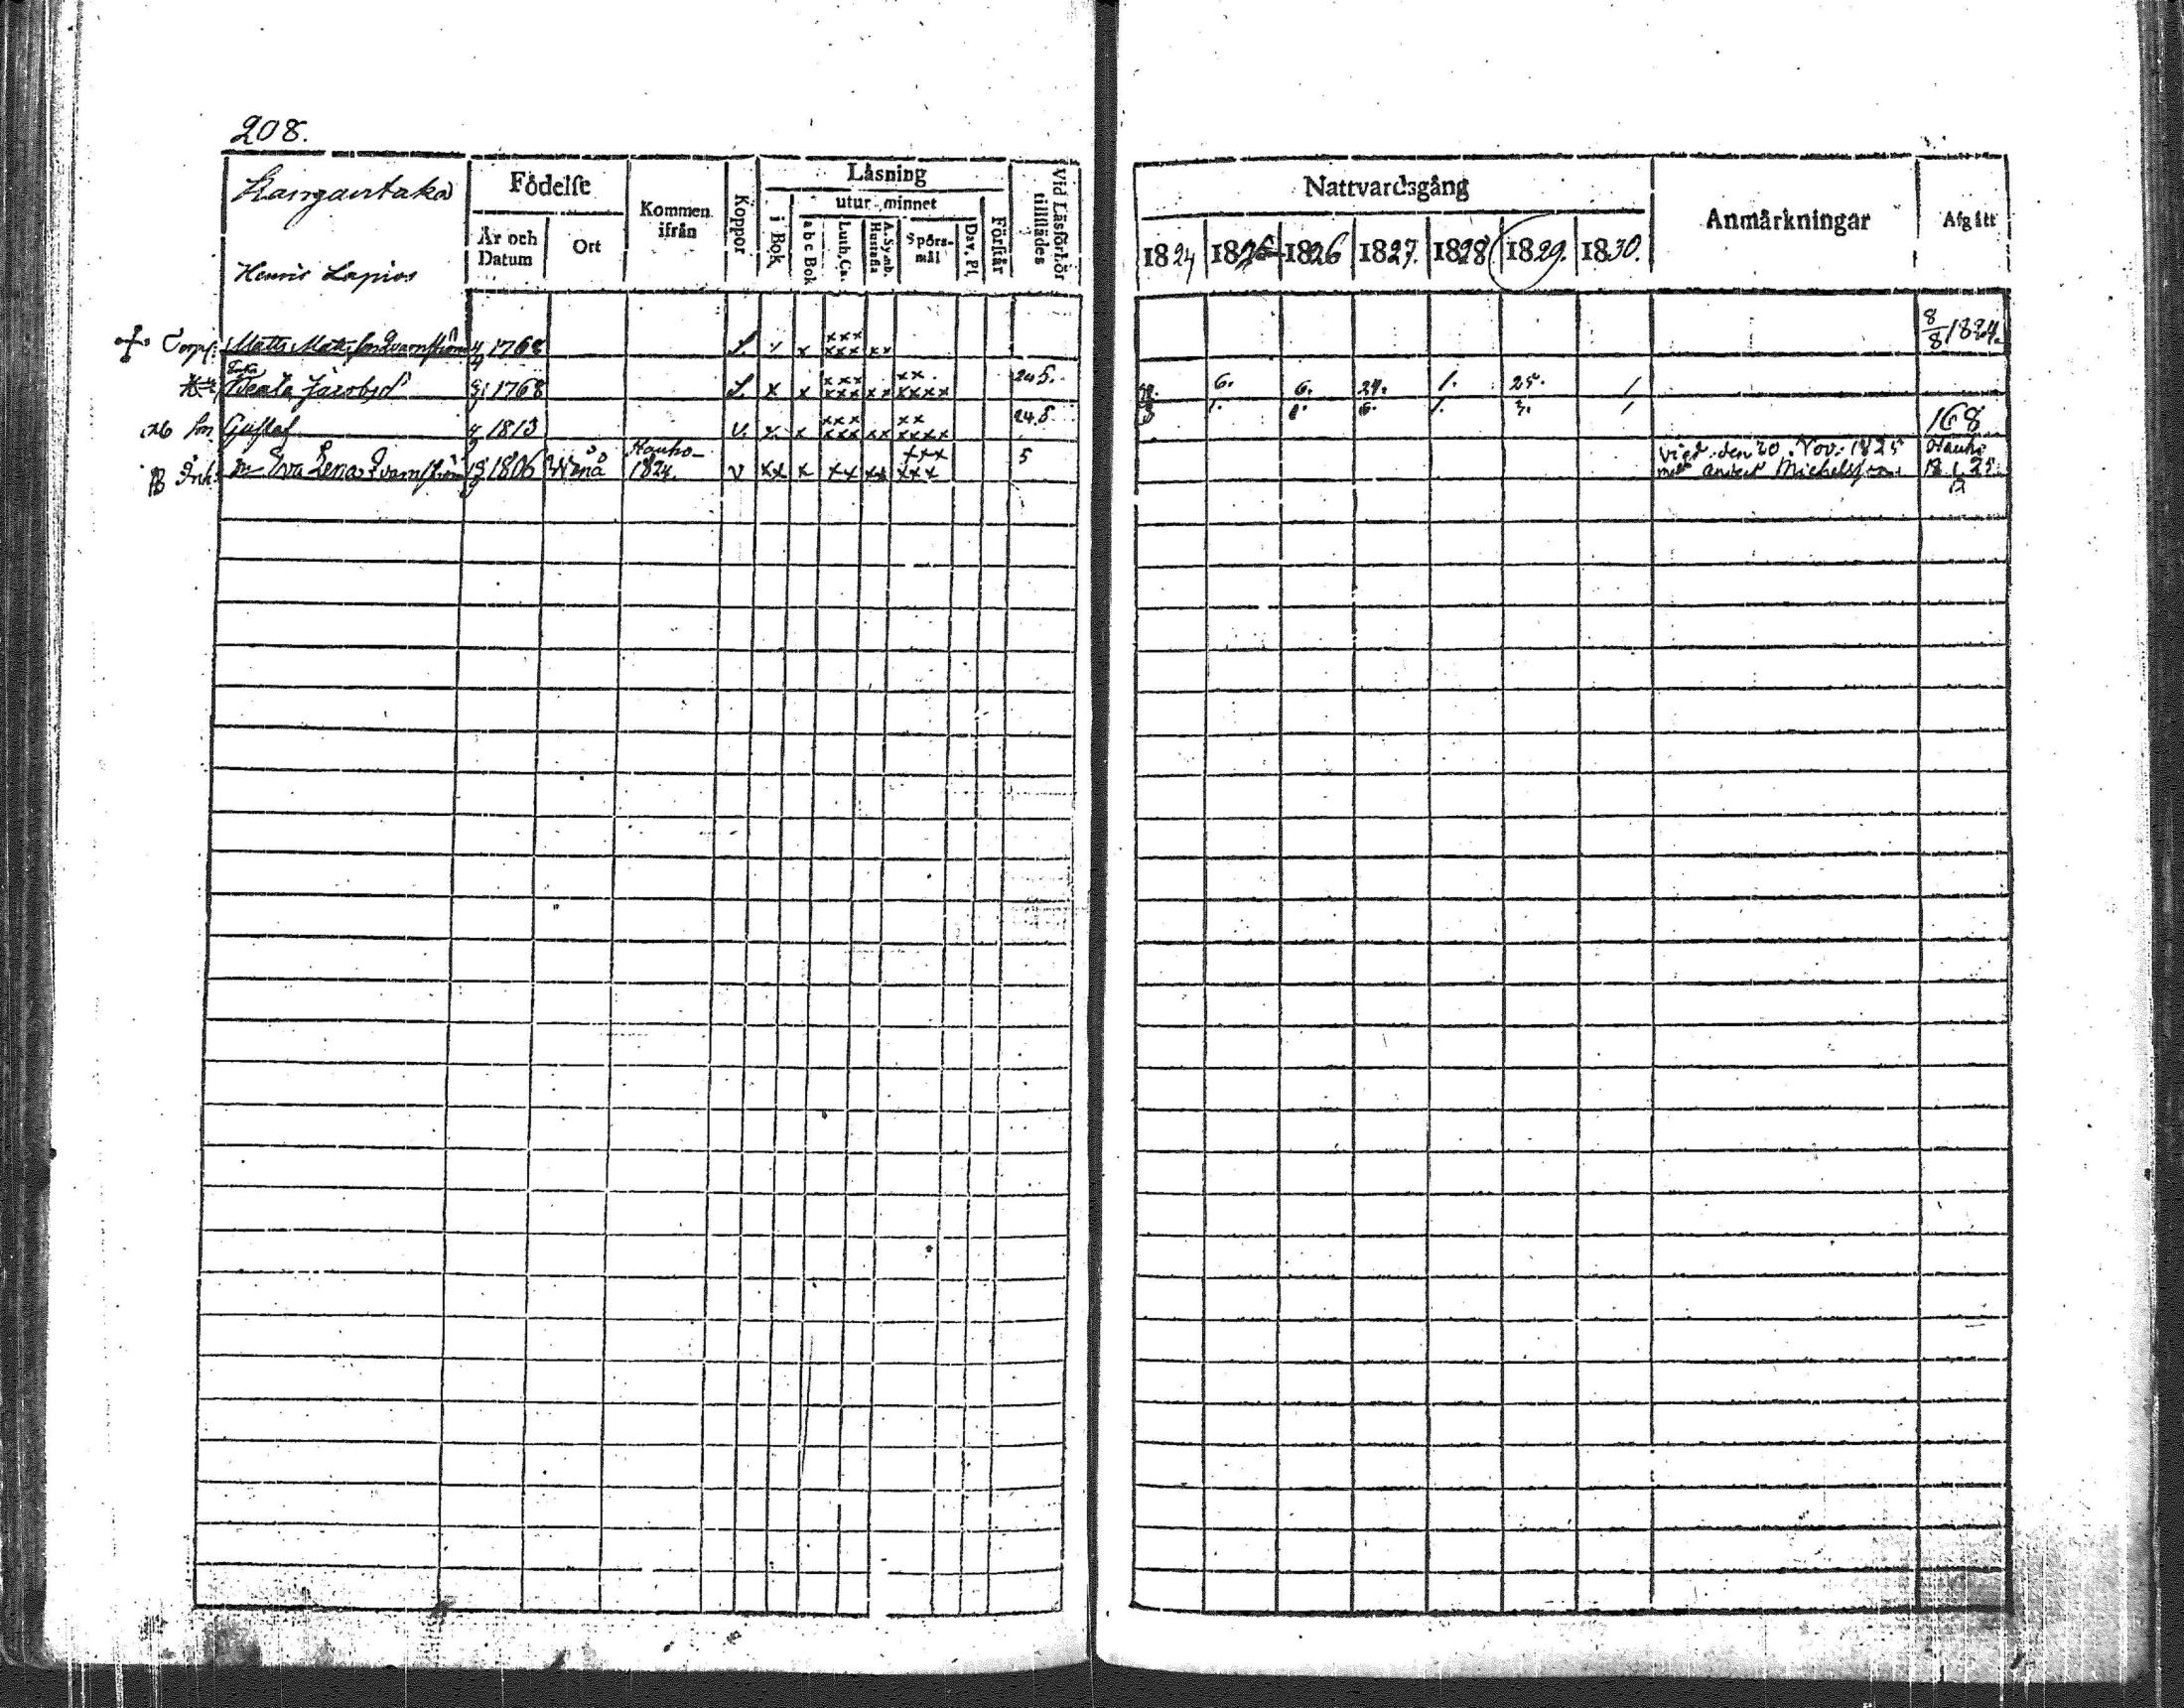 208.
Kangantaka
Henric Lapios
Födelse
År och Datum
Ort
Kommen ifrån
Koppor
Läsning
i Bok
utur minnet
a b c Bok
Luth. Ca.
A. Symb. Hustafla
Spörs-mål
Dav. Pf.
Förstår
Vid Läsförhör tillstädes
Nattvardsgång
1824 1825 1826 1827. 1828 1829. 1830.
Anmärkningar
Afgått
Torp. Matts Matsson Qvarnström 1768 x x xxx xxx xx 8/8 1824.
Enka Beata Jacobsd 1768 x x xxx xxx xx xx xxxx 245. 6. 6. 24. 1. 25. 1
Son Gustaf 1813 v. x. x xxx xxx xx xx xxxx 245 1. 6. 1. 1 168
Eva Lena Qvarnström 1806 Wånå Hauho 1824. v xx x xx xx xxx xxx 5 vigd den 20 Nov. 1825 Hauho
med Michelsson